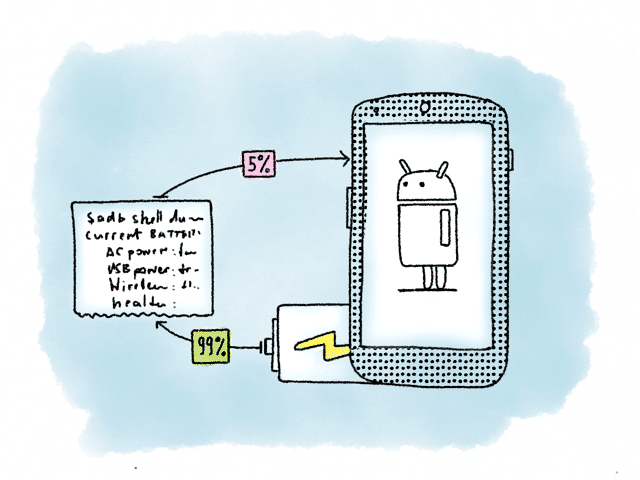 5%
$adb shell dum
current BATTERY
AC power:
USB power: tr
Wireless:
health:
99%